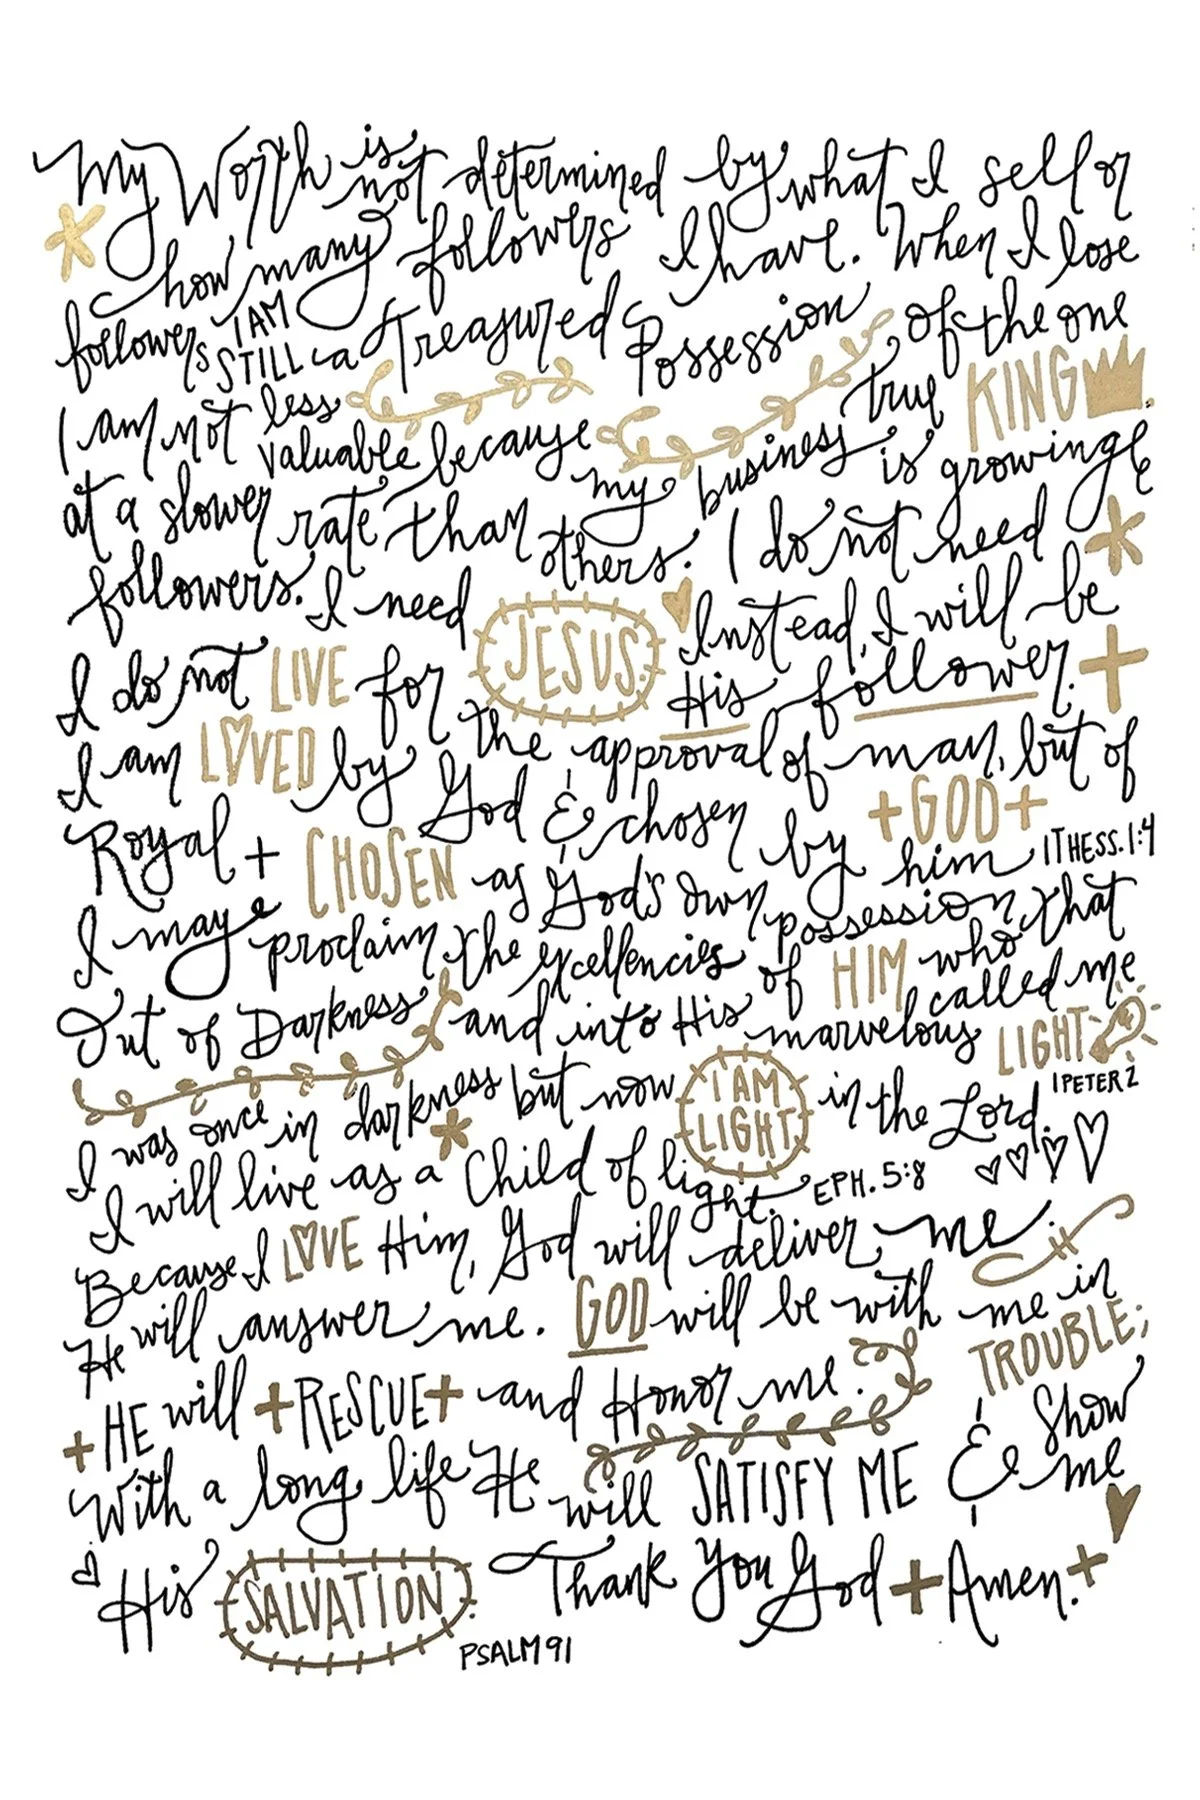 My Worth is not determined by what I sell or
how many followers I have. When I lose
followers I AM STILL a Treasured Possession of the one
true KING
I am not less valuable because my business is growing
at a slower rate than others. I do not need
followers. I need JESUS. Instead, I will be
His follower.
I do not LIVE for the approval of man, but of
+GOD+
I am LOVED by God & chosen by him 1 THESS. 1:4
Royal + CHOSEN as God's own possession, that
I may proclaim the excellencies of HIM who called me
Out of Darkness and into His marvelous LIGHT
1 PETER 2
I was once in darkness but now I AM LIGHT in the Lord.
I will live as a Child of light. EPH. 5:8
Because I LOVE Him, God will deliver me.
He will answer me. GOD will be with me in
TROUBLE;
+HE will +RESCUE+ and Honor me.
With a long life He will SATISFY ME & Show me
His SALVATION. Thank You God + Amen. +
PSALM 91